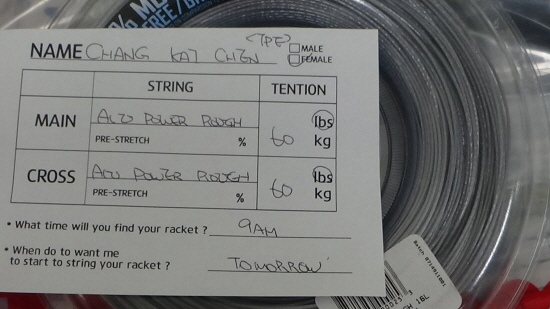 % MO
FREE / BA
<TPE>
NAME CHANG KAI CHEN MALE
FEMALE
STRING TENTION
MAIN ALU POWER ROUGH 60 lbs
PRE-STRETCH % kg
CROSS ALU POWER ROUGH 60 lbs
PRE-STRETCH % kg
• What time will you find your racket ? 9AM
• When do to want me
to start to string your racket ? TOMORROW